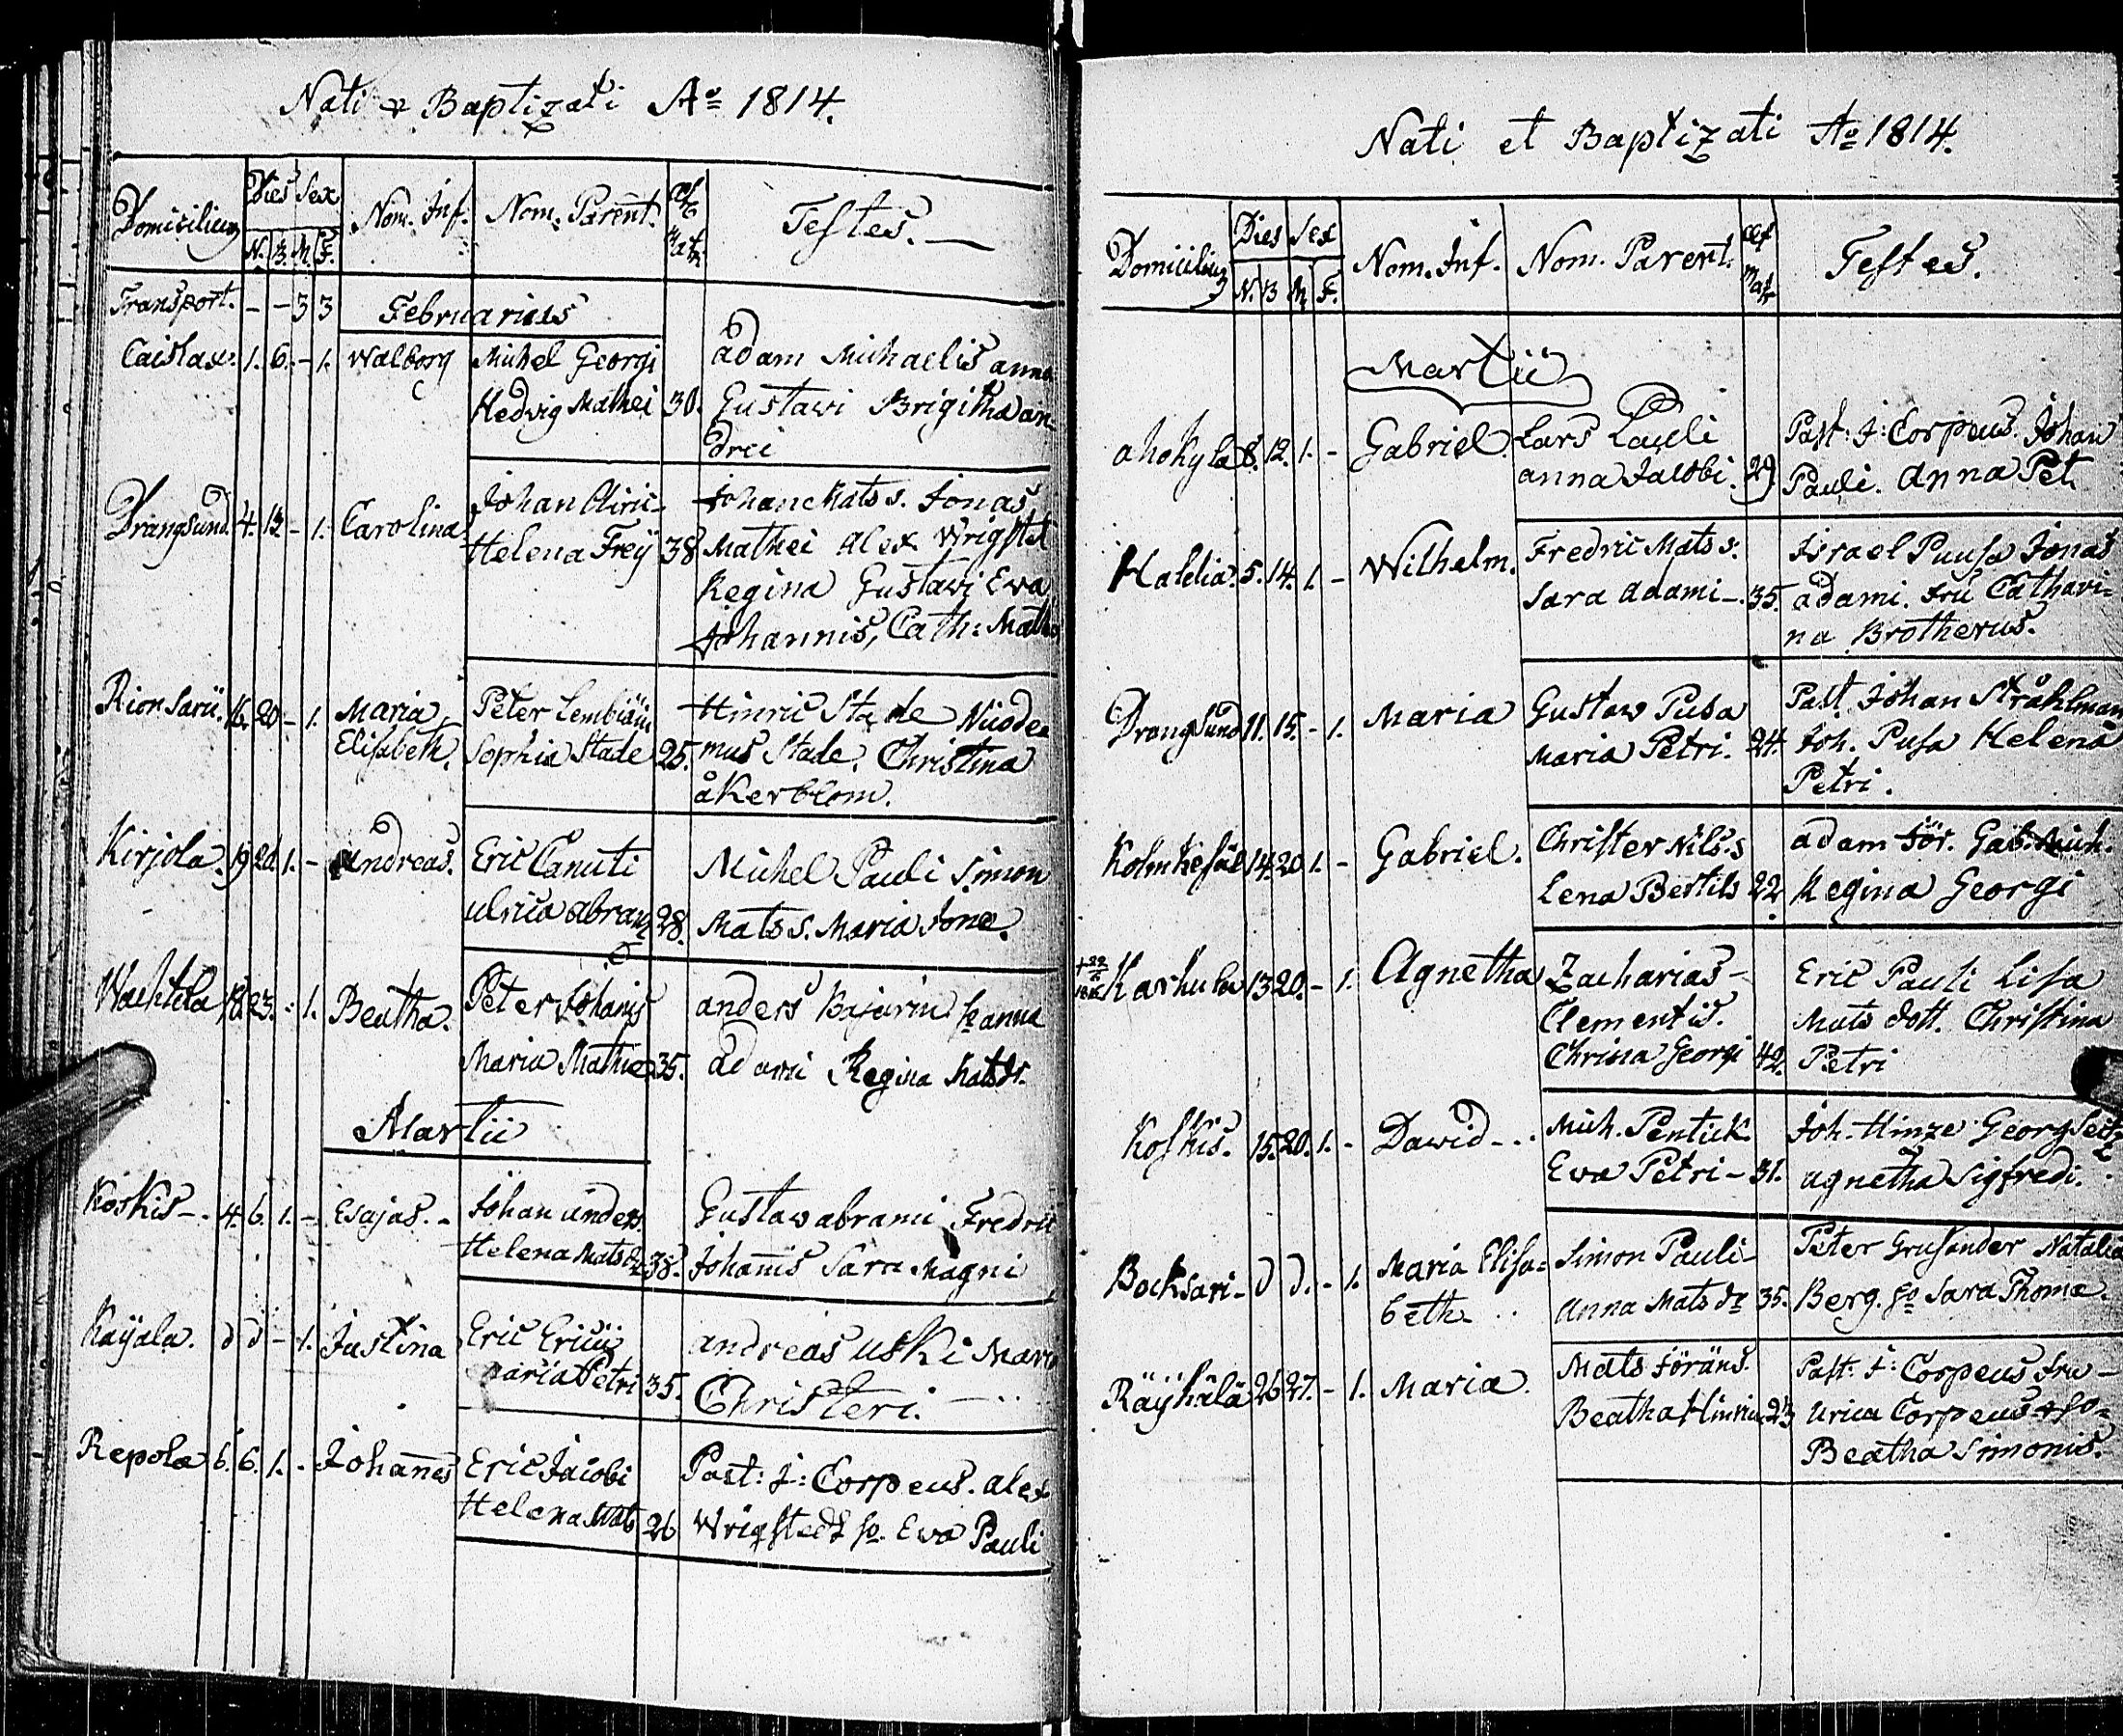 Nati & Baptizati Aº 1814.
Domicilium Dies Sex Nom. Inf. Nom. Parent. Testes.
N. B. M. F.
Transport. - - 3 3 Februarius
Caislax. 1. 6. - 1. Walborg Michel Georgi Adam Michaelis anna
Hedvig Mathei 30. Gustavi Brigitha an
drei
Drangsund. 4. 13 - 1. Carolina Johan Ulric Johan Mats s. Jonas
Helena Frey 38 Mathei Alex Wrigstet
Regina Gustavi Ewa
Johannis, Cath: Mats
Rionsarii. 16. 20 - 1. Maria Peter Lembiäin Hinric Stade Nicode
Elisabeth. Sophia Stade 25. mus Stade. Christina
åkerblom.
Kirjola. 19 20. 1. - Andreas. Eric Canuti Michel Pauli Simon
ulrica abram 28. Mats s. Maria Jonæ.
Wachtela 18. 23. - 1. Beatha. Peter Johanis anders Bajarin anna
Maria Mathie 35. adami Regina Mats
Martii
Koskis - 4. 6. 1. - Esajas. - Johan anders Gustaw abrami Fredric
Helena Mats 38. Johanis Sara Magni
Kayala. d d - 1. Justina Eric Ericii andreas uski Mari
Maria Petri 35. Christeri.
Repola 6. 6. 1. - Johanes Eric Jacobi Past: J: Corpeus. alex
Helena Mats 26 Wrigstedt Ewa Pauli
Nati et Baptizati Aº 1814.
Domicilium Dies Sex Nom. Inf. Nom. Parent. Testes.
N. B M F.
Martii
ahokyla 8. 12. 1. - Gabriel. Lars Pauli Past: J: Corpeus. Johan
anna Jacobi. 29 Pauli. Anna Pet.
Haldia. 5. 14. 1. - Wilhelm. Fredric Mats s. Israel Pusa Jonas
Sara adami - 35. adami. Fru Cathari=
na Brotherus.
Drangsund 11. 15. - 1. Maria Gustaw Pusa Past. Johan Stråhlman
Maria Petri. 24. Joh. Pusa Helena
Petri.
Kolmikesäl 14. 20 1. - Gabriel. Christer Nils. s adam Jör. Gab. Mich.
Lena Bertils 22. Regina Georgi
Karhula 13 20. - 1. Agnetha Zacharias - Eric Pauli Lisa
Clementis. Mats dott. Christina
Chrina Georgi 42. Petri
Koskis. 15. 20. 1. - Dawid - Mich. Pentick. Joh. Hinze Georg Seitz
Ewa Petri - 31. agnetha Sigfredi.
Bocksari - d d. - 1. Maria Elisa= Simon Pauli - Peter Grusander Natalia
beth. Anna Mats dr 35. Berg. Sara Thomæ.
Räyhälä 26 27. - 1. Maria. Mats Jöräns. Past: J: Corpeus fru -
Beatha Hinric 23 Urica Corpeus
Beatha Simonis.